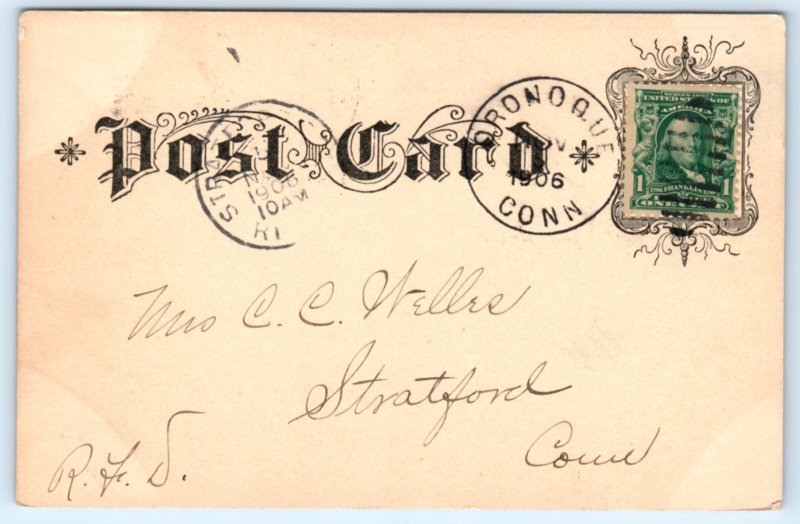 Post Card
ORONOQUE
NOV
1906
CONN
1906
10 AM
SERIES 1902
UNITED STATES OF
AMERICA
1 FRANKLIN 1
ONE CENT
Mrs C. C. Welles
Stratford
Conn
R. F. D.